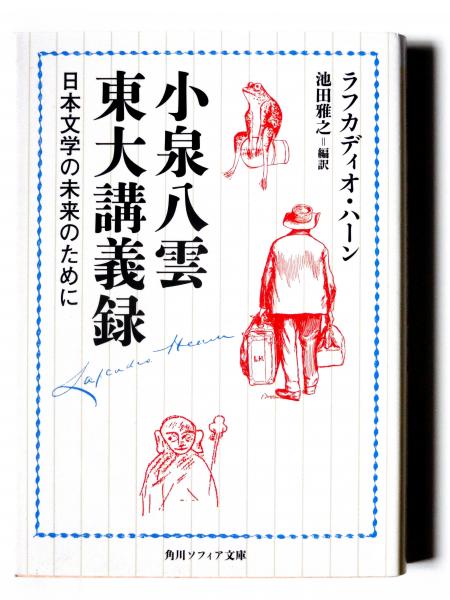 ラフカディオ・ハーン
池田雅之=編訳
小泉八雲
東大講義録
日本文学の未来のために
Lafcadio Hearn
L.H.
角川ソフィア文庫